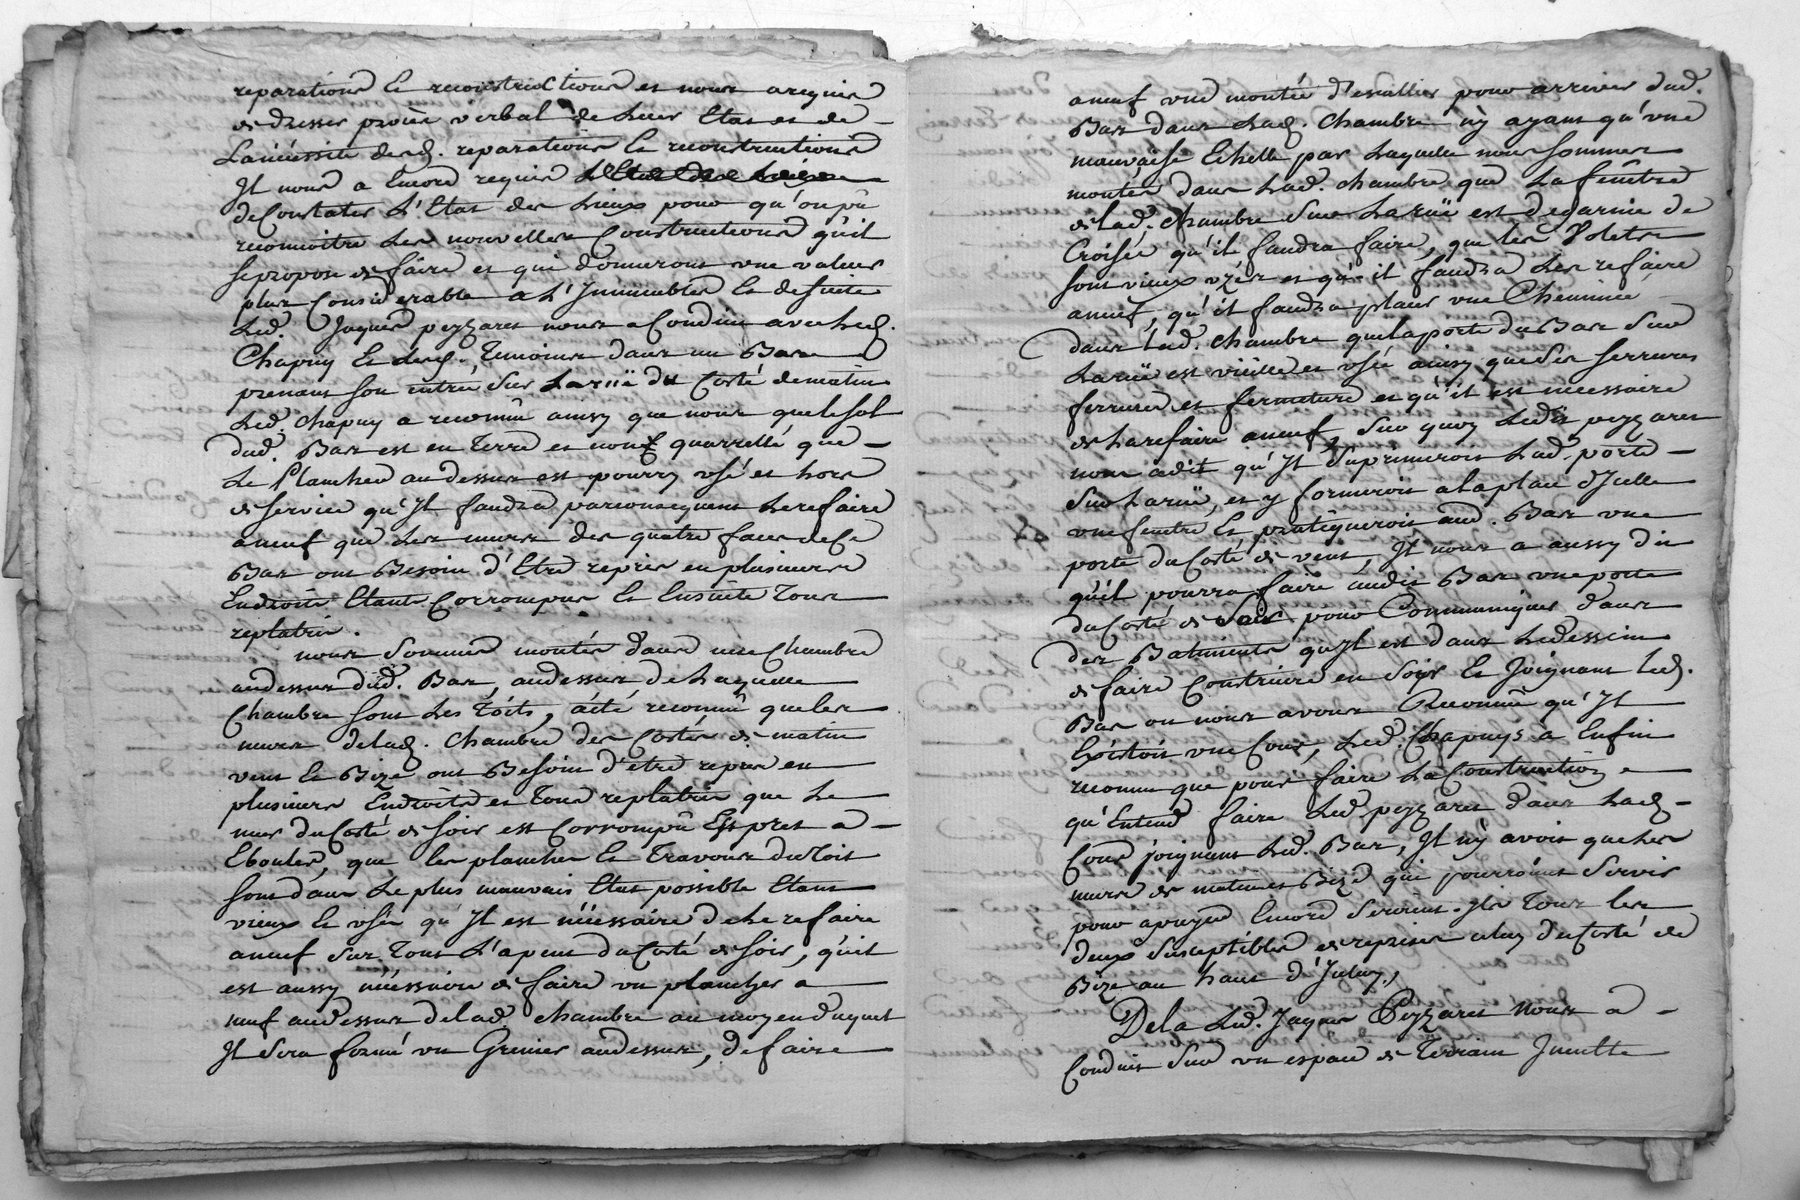 reparations & reconstructions et nous a requis
de dresser procès verbal de leur Etat et de
La necéssité desd. reparations & reconstructions
Jl nous a Encore requis
de Constater L'Etat des Lieux pour qu'on pu
reconnoitre Les nouvelles Constructions qu'il
se propose de faire et qui donneront une valeur
plus Considerable a L'Jmmeuble & de suitte
Led. Jaques peyzaret nous a Conduit avec led.
Chapuy & desd. Temoins dans un Bas
prenant son entrée sur La ruë du Costé de matin
Led. Chapuy a reconnû ainsy que nous que le sol
dud. Bas est en Terre et non quarrellé que
Le Plancher au dessus est pourry usé et hors
de service qu'Jl faudra par consequent Le refaire
a neuf que Les murs des quatre faces de Ce
Bas ont Besoin d'Etre repris en plusieurs
Endroits Etants Corrompus & Ensuite Tous
replatris.
nous sommes montés dans une Chambre
au dessus dud. Bas, au dessus de Laquelle
Chambre sont Les Toits, a été reconnû que les
murs de lad. Chambre des Costés de matin
vent & Bize ont Besoin d'etre repris en
plusieurs Endroits et Tous replatris que Le
mur du Costé de soir est Corrompû & prest a
Ebouler, que les planches & Travons du Toit
sont dans Le plus mauvais Etat possible Etant
vieux & usés qu'Jl est nécessaire de Le refaire
a neuf sur Tout L'apent du Costé de soir, qu'il
est aussy nécessaire de faire un plancher a
neuf au dessus de lad. chambre au moyen duquel
Jl sera formé un Grenier au dessus, de faire
a neuf une montée d'escallier pour arriver dud.
Bas dans Lad. Chambre n'y ayant qu'une
mauvaise Echelle par Laquelle nous sommes
montés dans Lad. chambre, que La fenêtre
de lad. Chambre sur La ruë est degarnie de
Croisée qu'il faudra faire, que les Volets
sont vieux uzés et qu'il faudra Les refaire
a neuf, qu'il faudra placer une Cheminée
dans lad. chambre que la porte du Bas sur
La ruë est vieille et usée ainsy que ses serrures
ferrures et fermeture et qu'il est necessaire
de La refaire a neuf, sur quoy Led. peyzaret
nous a dit qu'Jl suprimeroit Lad. porte
sur La ruë, et y formeroit a la place d'Jcelle
une fenetre & pratiqueroit aud. Bas une
porte du Costé de vent, Jl nous a aussy dit
qu'il pourra faire audit Bas une porte
du Costé de Soir pour Communiquer dans
des Batiments qu'Jl est dans Le dessein
de faire Construire en Soir & Joignant led.
Bas ou nous avons Reconnû qu'Jl
Existoit une Cour, Led. Chapuys a Enfin
reconnu que pour faire La Construction
qu'Entend faire Led. peyzaret dans Lad.
Cour joignant Led. Bas, Jl n'y avoit que Les
murs de matin et Bize qui pourroient Servir
pour apuyer Encore seroient-ils Tous Les
deux susceptibles de reprises celuy du Costé de
Bize au haut d'Jceluy,
De la Led. Jaques Peyzaret nous a
Conduit sur un espace de Terrain Jnculte